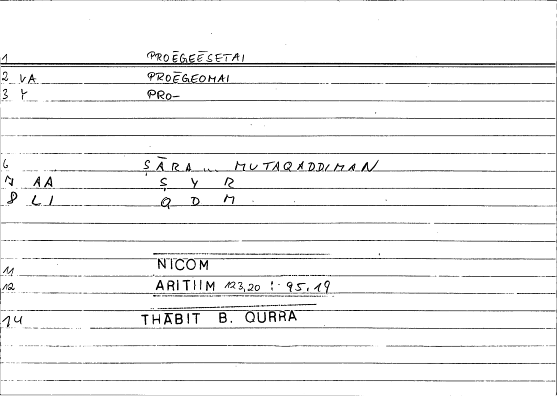 1 PROĒGEĒSETAI
2 VA PROĒGEOMAI
3 Y PRO-
6 ṢĀRA... MUTAQADDIMAN
7 AA Ṣ Y R
8 LI Q D M
11 NICOM
12 ARITIIM 123,20 : 95,19
14 THĀBIT B. QURRA